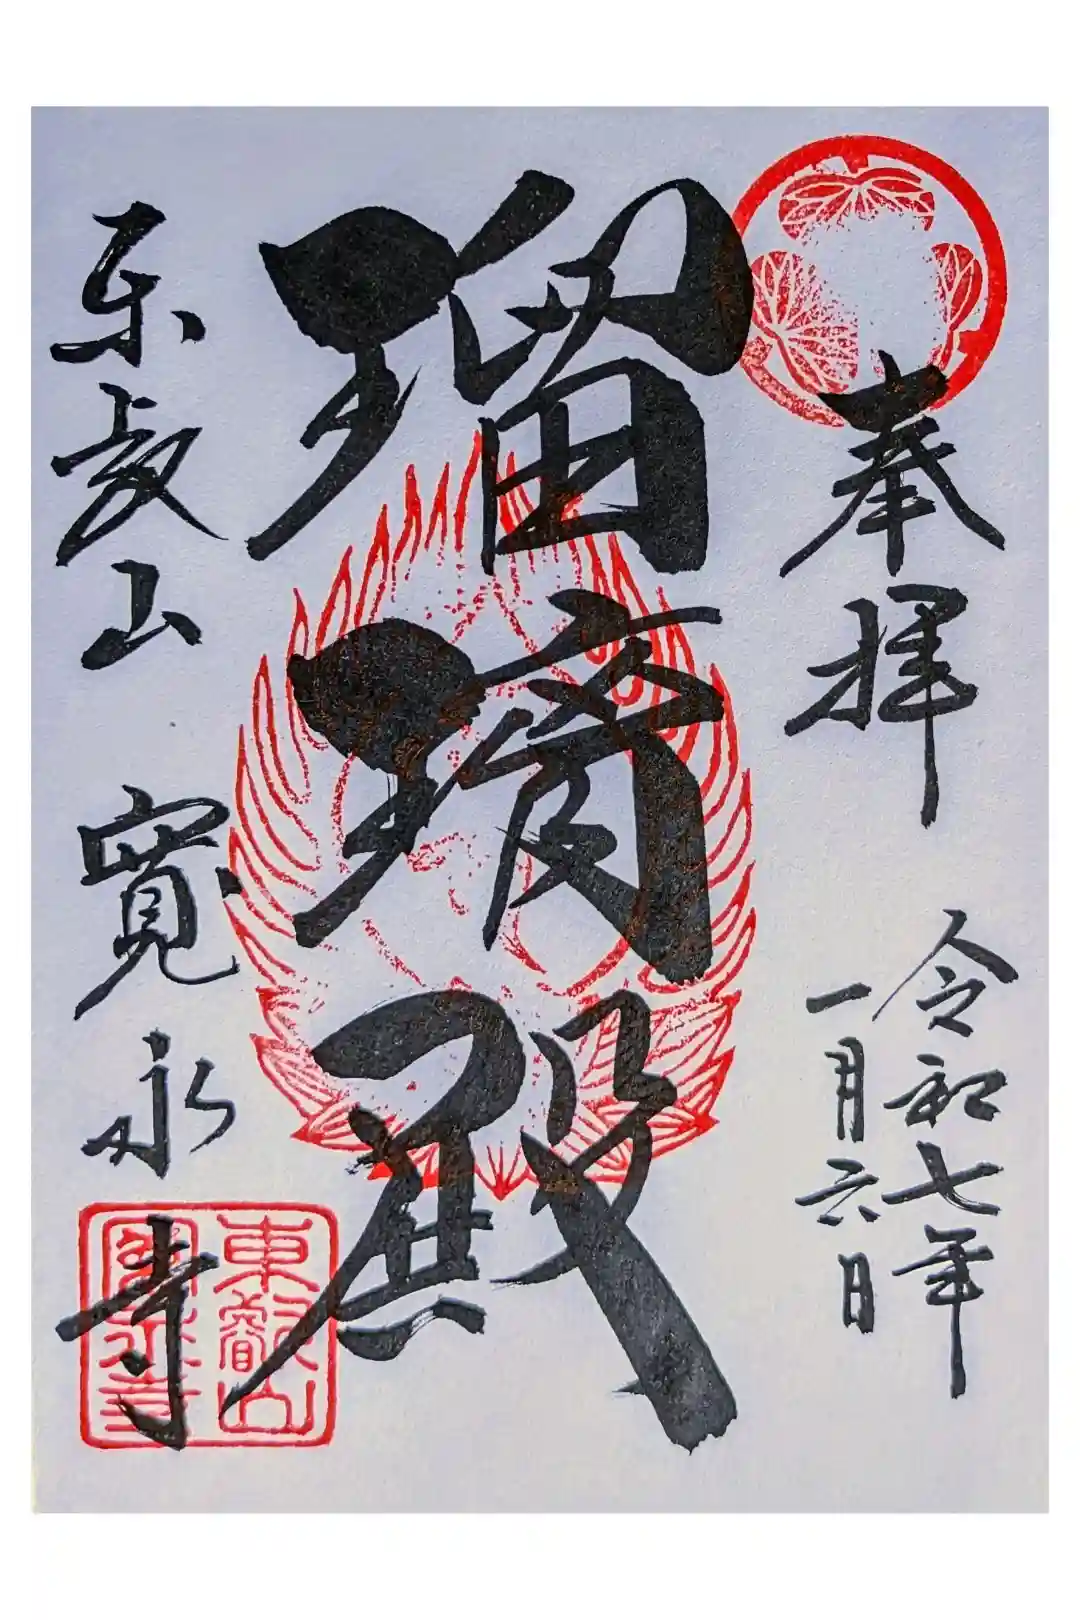 奉拝
令和七年
一月六日
瑠璃殿
東叡山 寛永寺
東叡山
寛永寺